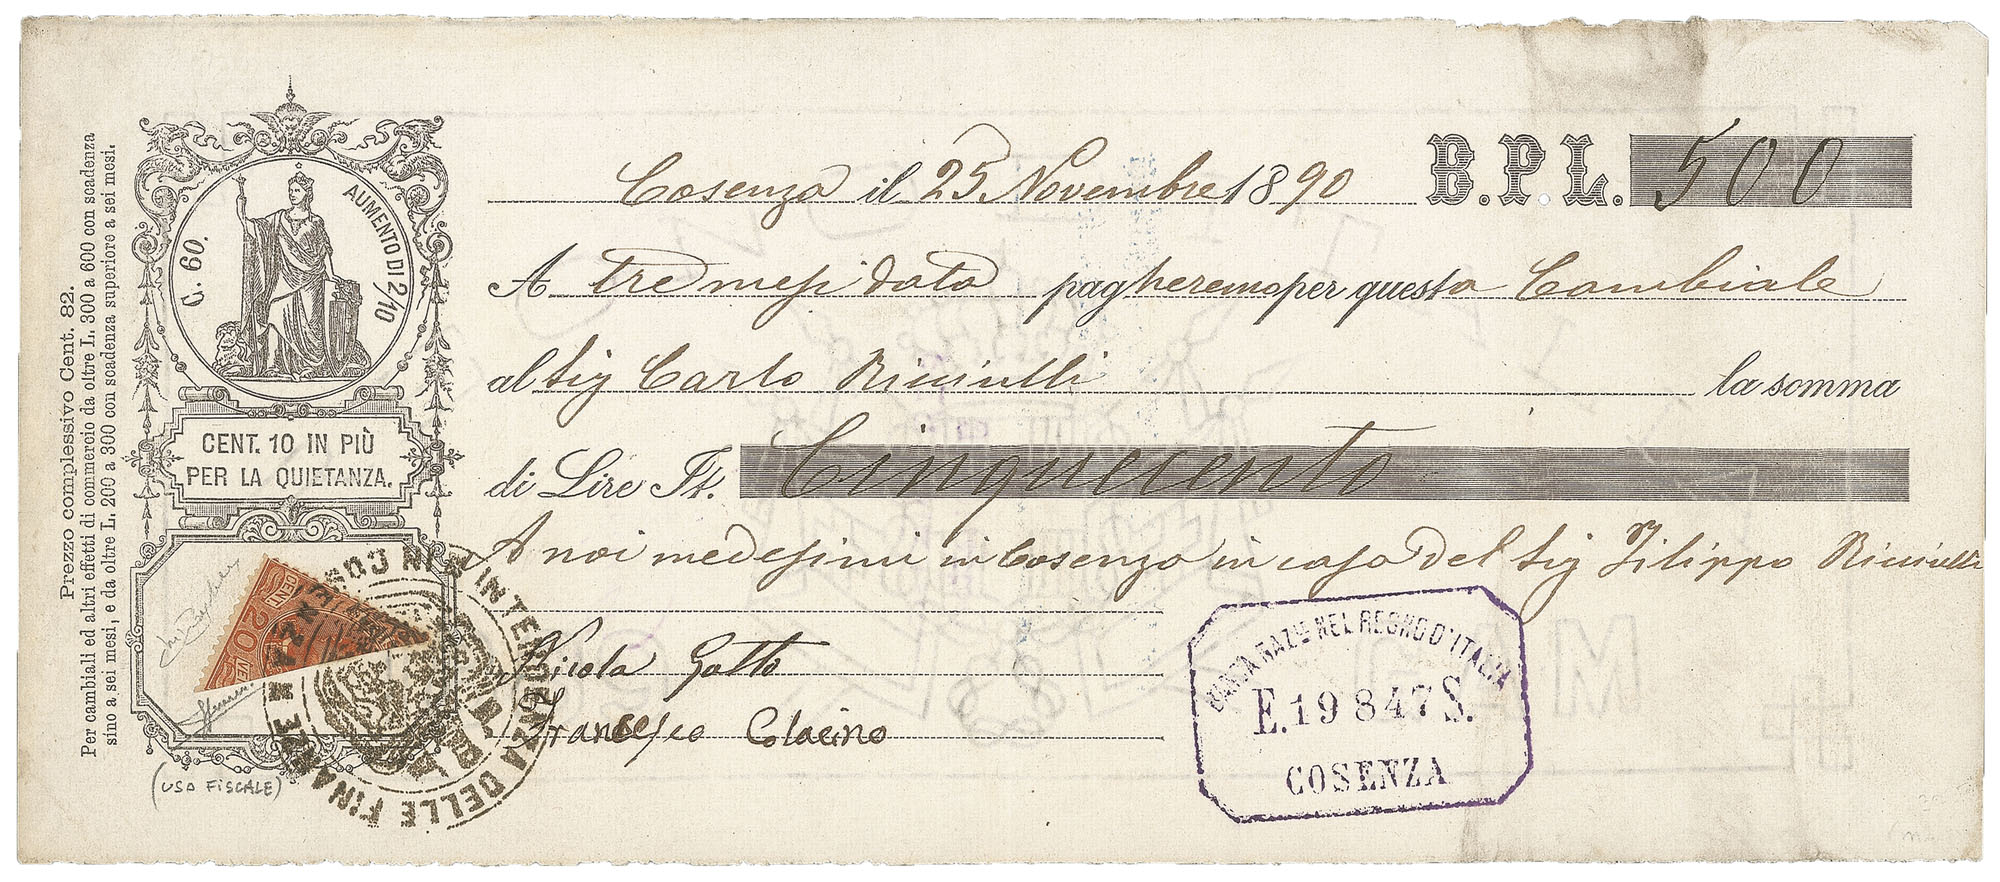 Prezzo complessivo Cent. 82.
Per cambiali ed altri effetti di commercio da oltre L. 300 a 600 con scadenza
sino a sei mesi, e da oltre L. 200 a 300 con scadenza superiore a sei mesi.
C. 60.
AUMENTO DI 2/10
CENT. 10 IN PIÙ
PER LA QUIETANZA.
CENT 20
(USO FISCALE)
INTENDENZA DELLE FINANZE
Cosenza il 25 Novembre 1890 B.P.L. 500
A tre mesi data pagheremo per questa Cambiale
al Sig Carlo Ricciulli la somma
di Lire It. Cinquecento
A noi medesimi in Cosenza in casa del Sig Filippo Ricciulli
Nicola Gallo
Francesco Colacino
BANCA NAZLE NEL REGNO D'ITALIA
E. 19847 S.
COSENZA